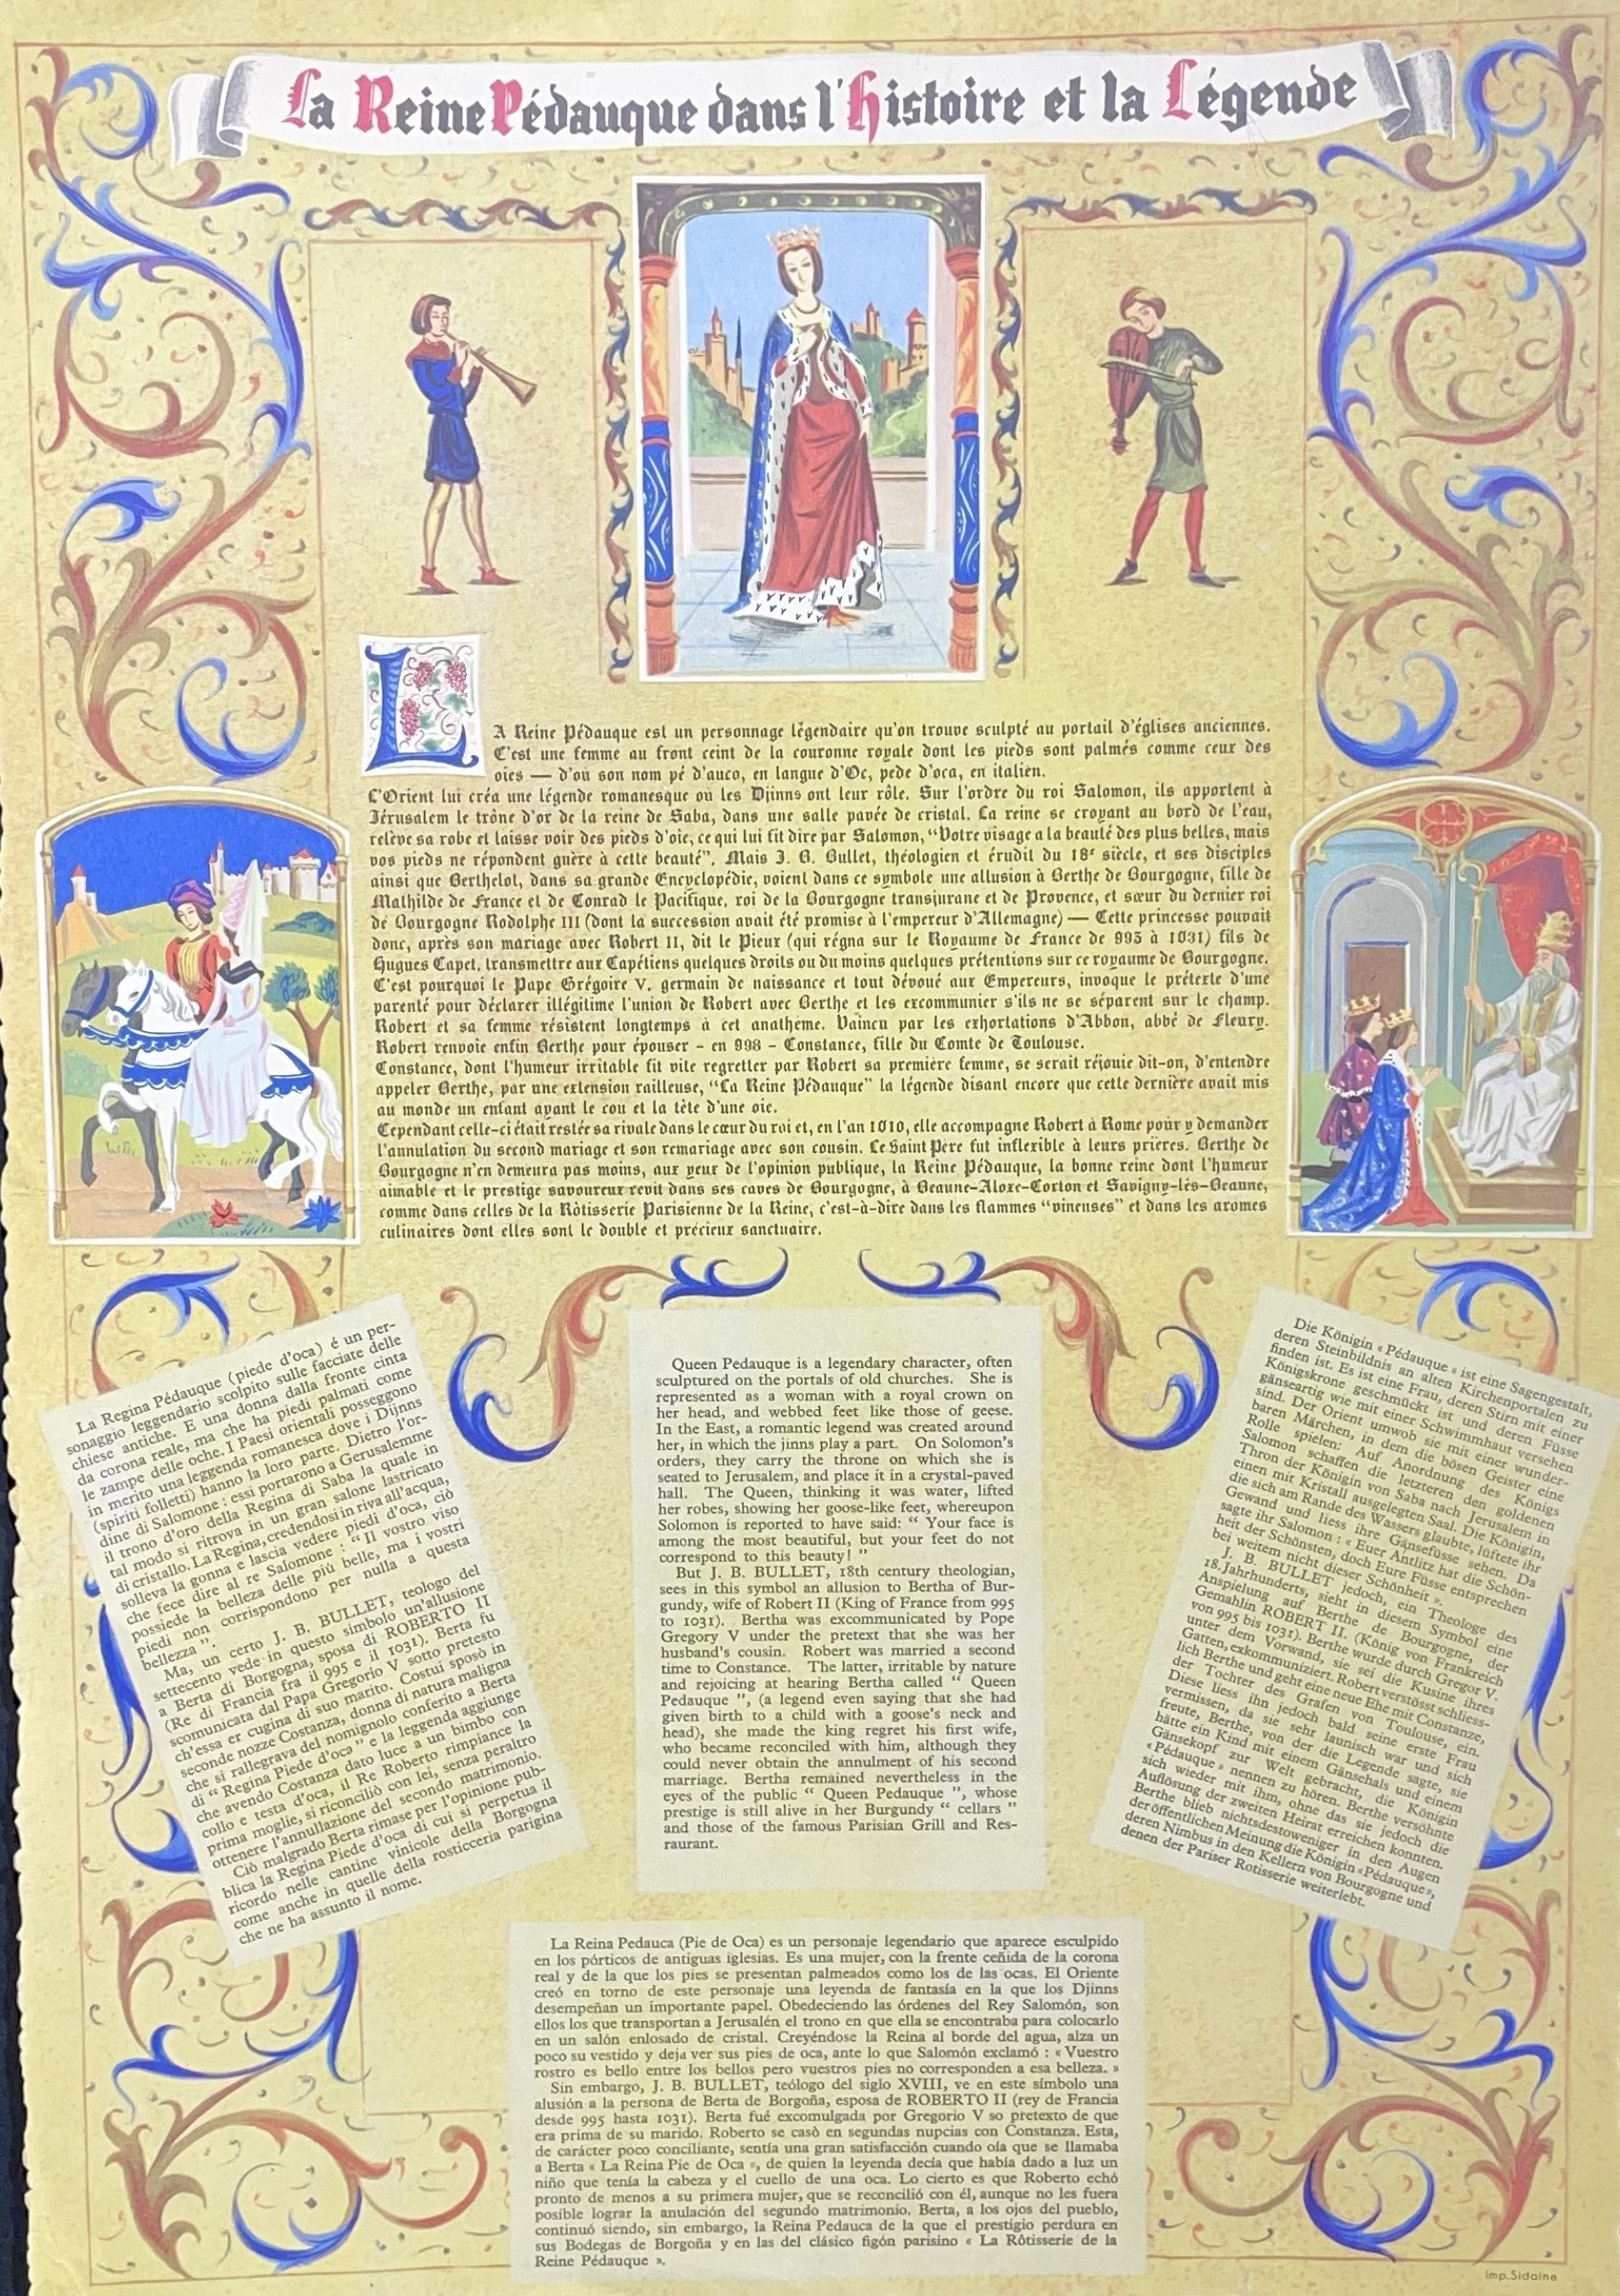 La Reine Pédauque dans l'Histoire et la Légende
LA Reine Pédauque est un personnage légendaire qu'on trouve sculpté au portail d'églises anciennes.
C'est une femme au front ceint de la couronne royale dont les pieds sont palmés comme ceux des
oies — d'où son nom pé d'auco, en langue d'Oc, pede d'oca, en italien.
L'Orient lui créa une légende romanesque où les Djinns ont leur rôle. Sur l'ordre du roi Salomon, ils apportent à
Jérusalem le trône d'or de la reine de Saba, dans une salle pavée de cristal. La reine se croyant au bord de l'eau,
relève sa robe et laisse voir des pieds d'oie, ce qui lui fit dire par Salomon, "Votre visage a la beauté des plus belles, mais
vos pieds ne répondent guère à cette beauté". Mais J. B. Bullet, théologien et érudit du 18e siècle, et ses disciples
ainsi que Berthelot, dans sa grande Encyclopédie, voient dans ce symbole une allusion à Berthe de Bourgogne, fille de
Mathilde de France et de Conrad le Pacifique, roi de la Bourgogne transjurane et de Provence, et sœur du dernier roi
de Bourgogne Rodolphe III (dont la succession avait été promise à l'empereur d'Allemagne) — Cette princesse pouvait
donc, après son mariage avec Robert II, dit le Pieux (qui régna sur le Royaume de France de 995 à 1031) fils de
Hugues Capet, transmettre aux Capétiens quelques droits ou du moins quelques prétentions sur ce royaume de Bourgogne.
C'est pourquoi le Pape Grégoire V. germain de naissance et tout dévoué aux Empereurs, invoque le prétexte d'une
parenté pour déclarer illégitime l'union de Robert avec Berthe et les excommunier s'ils ne se séparent sur le champ.
Robert et sa femme résistent longtemps à cet anathème. Vaincu par les exhortations d'Abbon, abbé de Fleury.
Robert renvoie enfin Berthe pour épouser - en 998 - Constance, fille du Comte de Toulouse.
Constance, dont l'humeur irritable fit vite regretter par Robert sa première femme, se serait réjouie dit-on, d'entendre
appeler Berthe, par une extension railleuse, "La Reine Pédauque" la légende disant encore que cette dernière avait mis
au monde un enfant ayant le cou et la tête d'une oie.
Cependant celle-ci était restée sa rivale dans le cœur du roi et, en l'an 1010, elle accompagne Robert à Rome pour y demander
l'annulation du second mariage et son remariage avec son cousin. Le Saint Père fut inflexible à leurs prières. Berthe de
Bourgogne n'en demeura pas moins, aux yeux de l'opinion publique, la Reine Pédauque, la bonne reine dont l'humeur
aimable et le prestige savoureux revit dans ses caves de Bourgogne, à Beaune-Aloxe-Corton et Savigny-lès-Beaune,
comme dans celles de la Rôtisserie Parisienne de la Reine, c'est-à-dire dans les flammes "vineuses" et dans les aromes
culinaires dont elles sont le double et précieux sanctuaire.
La Regina Pédauque (piede d'oca) é un per-
sonaggio leggendario scolpito sulle facciate delle
chiese antiche. E una donna dalla fronte cinta
da corona reale, ma che ha piedi palmati come
le zampe delle oche. I Paesi orientali posseggono
in merito una leggenda romanesca dove i Dijnns
(spiriti folletti) hanno la loro parte. Dietro l'or-
dine di Salomone : essi portarono a Gerusalemme
il trono d'oro della Regina di Saba la quale in
tal modo si ritrova in un gran salone lastricato
di cristallo. La Regina, credendosi in riva all'acqua,
solleva la gonna e lascia vedere piedi d'oca, ciò
che fece dire al re Salomone : " Il vostro viso
possiede la bellezza delle più belle, ma i vostri
piedi non corrispondono per nulla a questa
bellezza ".
Ma, un certo J. B. BULLET, teologo del
settecento vede in questo simbolo un'allusione
a Berta di Borgogna, sposa di ROBERTO II
(Re di Francia fra il 995 e il 1031). Berta fu
scomunicata dal Papa Gregorio V sotto pretesto
ch'essa er cugina di suo marito. Costui sposò in
seconde nozze Costanza, donna di natura maligna
che si rallegrava del nomignolo conferito a Berta
di " Regina Piede d'oca " e la leggenda aggiunge
che avendo Costanza dato luce a un bimbo con
collo e testa d'oca, il Re Roberto rimpiance la
prima moglie, si riconciliò con lei, senza peraltro
ottenere l'annullazione del secondo matrimonio.
Ciò malgrado Berta rimase per l'opinione pub-
blica la Regina Piede d'oca di cui si perpetua il
ricordo nelle cantine vinicole della Borgogna
come anche in quelle della rosticceria parigina
che ne ha assunto il nome.
Queen Pedauque is a legendary character, often
sculptured on the portals of old churches. She is
represented as a woman with a royal crown on
her head, and webbed feet like those of geese.
In the East, a romantic legend was created around
her, in which the jinns play a part. On Solomon's
orders, they carry the throne on which she is
seated to Jerusalem, and place it in a crystal-paved
hall. The Queen, thinking it was water, lifted
her robes, showing her goose-like feet, whereupon
Solomon is reported to have said: " Your face is
among the most beautiful, but your feet do not
correspond to this beauty! "
But J. B. BULLET, 18th century theologian,
sees in this symbol an allusion to Bertha of Bur-
gundy, wife of Robert II (King of France from 995
to 1031). Bertha was excommunicated by Pope
Gregory V under the pretext that she was her
husband's cousin. Robert was married a second
time to Constance. The latter, irritable by nature
and rejoicing at hearing Bertha called " Queen
Pedauque ", (a legend even saying that she had
given birth to a child with a goose's neck and
head), she made the king regret his first wife,
who became reconciled with him, although they
could never obtain the annulment of his second
marriage. Bertha remained nevertheless in the
eyes of the public " Queen Pedauque ", whose
prestige is still alive in her Burgundy " cellars "
and those of the famous Parisian Grill and Res-
raurant.
Die Königin « Pédauque » ist eine Sagengestalt,
deren Steinbildnis an alten Kirchenportalen zu
finden ist. Es ist eine Frau, deren Stirn mit einer
Königskrone geschmückt ist und deren Füsse
gänseartig wie mit einer Schwimmhaut versehen
sind. Der Orient umwob sie mit einer wunder-
baren Märchen, in dem die bösen Geister eine
Rolle spielen: Auf Anordnung des Königs
Salomon schaffen die letzteren den goldenen
Thron der Königin von Saba nach Jerusalem in
einen mit Kristall ausgelegten Saal. Die Königin,
die sich am Rande des Wassers glaubte, lüftete ihr
Gewand und liess ihre Gänsefüsse sehen. Da
sagte ihr Salomon : « Euer Antlitz hat die Schön-
heit der Schönsten, doch Eure Füsse entsprechen
bei weitem nicht dieser Schönheit ».
J. B. BULLET, jedoch, ein Theologe des
18. Jahrhunderts, sieht in diesem Symbol eine
Anspielung auf Berthe de Bourgogne, der
Gemahlin ROBERT II. (König von Frankreich
von 995 bis 1031). Berthe wurde durch Gregor V.
unter dem Vorwand, sie sei die Kusine ihres
Gatten, exkommuniziert. Robert verstösst schliess-
lich Berthe und geht eine neue Ehe mit Constanze,
der Tochter des Grafen von Toulouse, ein.
Diese liess ihn jedoch bald seine erste Frau
vermissen, da sie sehr launisch war und sich
freute, Berthe, von der die Legende sagte, sie
hätte ein Kind mit einem Gänsehals und einem
Gänsekopf zur Welt gebracht, die Königin
« Pédauque » nennen zu hören. Berthe versöhnte
sich wieder mit ihm, ohne das sie jedoch die
Auflösung der zweiten Heirat erreichen konnten.
Berthe blieb nichtsdestoweniger in den Augen
der öffentlichen Meinung die Königin «Pédauque»,
deren Nimbus in den Kellern von Bourgogne und
denen der Pariser Rotisserie weiterlebt.
La Reina Pedauca (Pie de Oca) es un personaje legendario que aparece esculpido
en los pórticos de antiguas iglesias. Es una mujer, con la frente ceñida de la corona
real y de la que los pies se presentan palmeados como los de las ocas. El Oriente
creó en torno de este personaje una leyenda de fantasía en la que los Djinns
desempeñan un importante papel. Obedeciendo las órdenes del Rey Salomón, son
ellos los que transportan a Jerusalén el trono en que ella se encontraba para colocarlo
en un salón enlosado de cristal. Creyéndose la Reina al borde del agua, alza un
poco su vestido y deja ver sus pies de oca, ante lo que Salomón exclamó : « Vuestro
rostro es bello entre los bellos pero vuestros pies no corresponden a esa belleza. »
Sin embargo, J. B. BULLET, teólogo del siglo XVIII, ve en este símbolo una
alusión a la persona de Berta de Borgoña, esposa de ROBERTO II (rey de Francia
desde 995 hasta 1031). Berta fué excomulgada por Gregorio V so pretexto de que
era prima de su marido. Roberto se casò en segundas nupcias con Constanza. Esta,
de carácter poco conciliante, sentía una gran satisfacción cuando oía que se llamaba
a Berta « La Reina Pie de Oca », de quien la leyenda decía que había dado a luz un
niño que tenía la cabeza y el cuello de una oca. Lo cierto es que Roberto echó
pronto de menos a su primera mujer, que se reconcilió con él, aunque no les fuera
posible lograr la anulación del segundo matrimonio. Berta, a los ojos del pueblo,
continuó siendo, sin embargo, la Reina Pedauca de la que el prestigio perdura en
sus Bodegas de Borgoña y en las del clásico figón parisino « La Rôtisserie de la
Reine Pédauque ».
imp. Sidaine